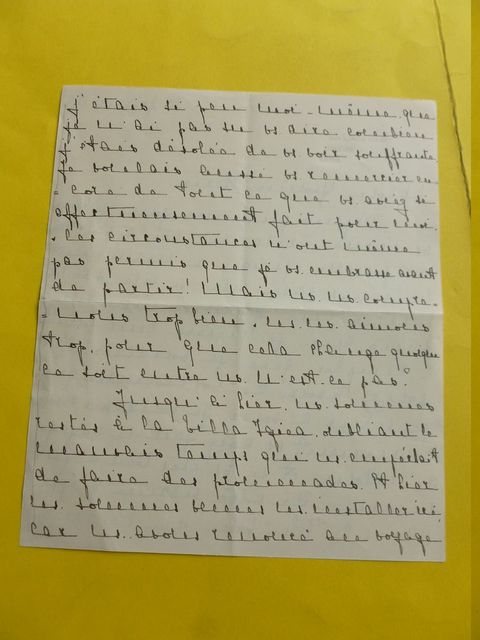 j'étais si peu moi-même que
je n'ai pas su vs dire combien
j'étais désolée de vs voir souffrante.
je voulais aussi vs remercier en-
-core de tout ce que vs aviez si
affectueusement fait pour moi.
Les circonstances n'ont même
pas permis que je vs. embrasse avant
de partir! Mais ns. ns. compre-
-nons trop bien. ns. ns. aimons
trop. pour que cela change quelque
ce soit entre ns. N'est-ce pas?
Jusqu'à hier. ns. sommes
restés à la Villa Igiea. oubliant le
mauvais temps qui ns. empêchait
de faire des promenades. Et hier
ns. sommes venues ns. installer ici
car ns. avons renoncé au voyage